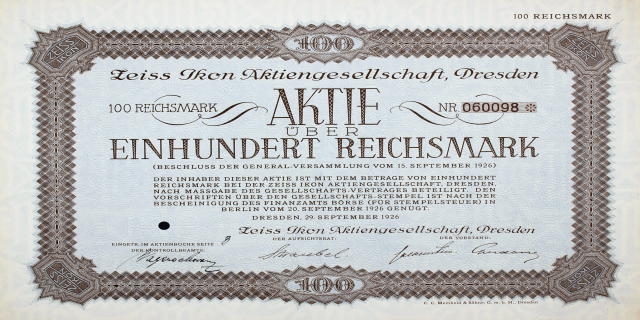 100 REICHSMARK
100
ZEISS IKON
ZEISS IKON
Zeiss Ikon Aktiengesellschaft, Dresden
100 REICHSMARK AKTIE NR. 060098
ÜBER
EINHUNDERT REICHSMARK
(BESCHLUSS DER GENERAL-VERSAMMLUNG VOM 15. SEPTEMBER 1926)
DER INHABER DIESER AKTIE IST MIT DEM BETRAGE VON EINHUNDERT
REICHSMARK BEI DER ZEISS IKON AKTIENGESELLSCHAFT, DRESDEN,
NACH MASSGABE DES GESELLSCHAFTS-VERTRAGES BETEILIGT. DEN
VORSCHRIFTEN ÜBER DEN GESELLSCHAFTS-STEMPEL IST NACH DER
BESCHEINIGUNG DES FINANZAMTS BÖRSE (FÜR STEMPELSTEUER) IN
BERLIN VOM 20. SEPTEMBER 1926 GENÜGT.
DRESDEN, 29. SEPTEMBER 1926
Zeiss Ikon Aktiengesellschaft, Dresden
EINGETR. IM AKTIENBUCHE SEITE
DER KONTROLLBEAMTE:
DER AUFSICHTSRAT:
DER VORSTAND:
ZEISS IKON
100
ZEISS IKON
C. C. Meinhold & Söhne, G. m. b. H., Dresden